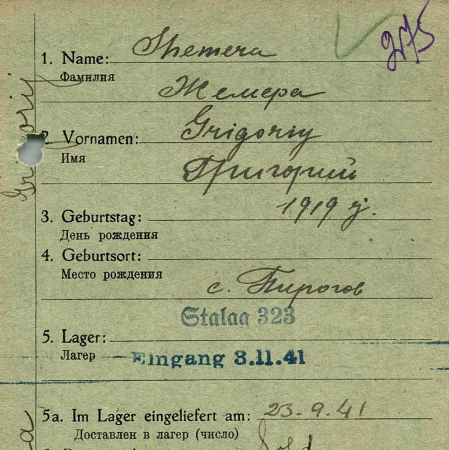 275
1. Name: Shemera
Фамилия
Жемера
2. Vornamen: Grigoriy
Имя
Григорий
3. Geburtstag: 1919 г.
День рождения
4. Geburtsort:
Место рождения
с. Пирогов
Stalag 323
5. Lager:
Лагер
Eingang 3.11.41
5a. Im Lager eingeliefert am: 23-9.41
Доставлен в лагер (число)
Sold